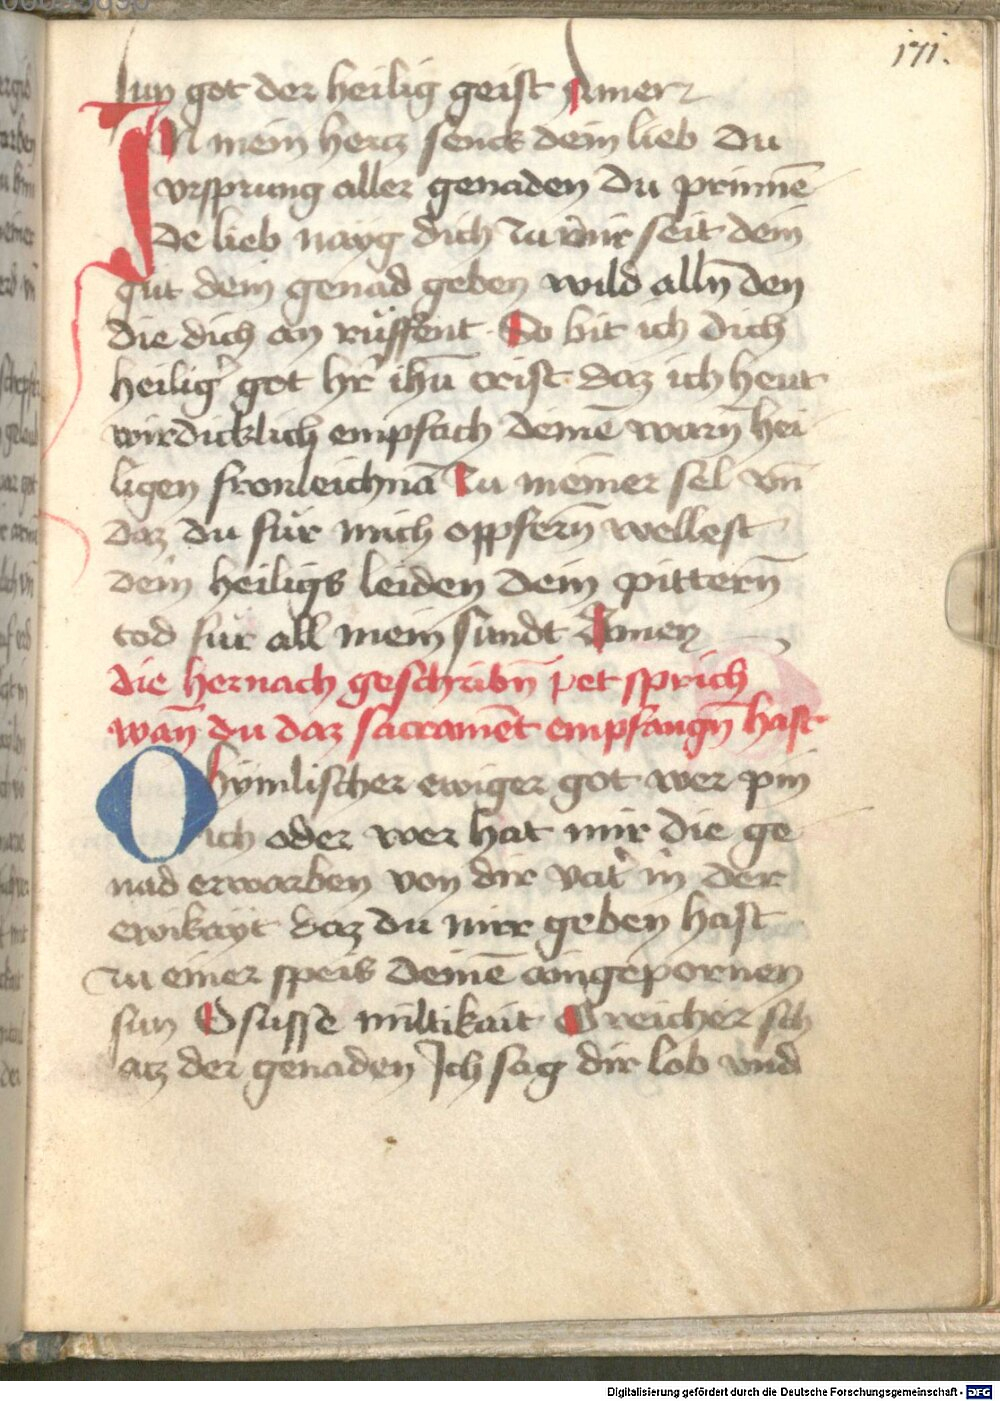 171.
sun got der heilig geist Amen
In mein hertz senck dein lieb Du
vrsprung aller genaden Du prinnē
de lieb nayg dich zu mir seit dein
gut dein genad geben wild alln̄ den
die dich an rüffent So bit ich dich
heilig' got hr̄ ihū crist daz ich heut
wirdicklich empfach deinē warn̄ hei
ligen fronleichnā Zu meiner sel vn̄
daz du für mich oppfern̄ wellest
dein heiligs leiden dein pittern̄
tod für all mein sundt Amen
die hernach geschribn̄ pet sprich
wan̄ du daz sacramēt empfangn̄ hast
O hymlischer ewiger got wer pin
ich oder wer hat mir die ge
nad erwarben von dir vat' in der
ewikayt daz du mir geben hast
zu einer speis deinē aingepornen
sun O susse miltikait O reicher sch
atz der genaden Ich sag dir lob vnd
Digitalisierung gefördert durch die Deutsche Forschungsgemeinschaft - DFG